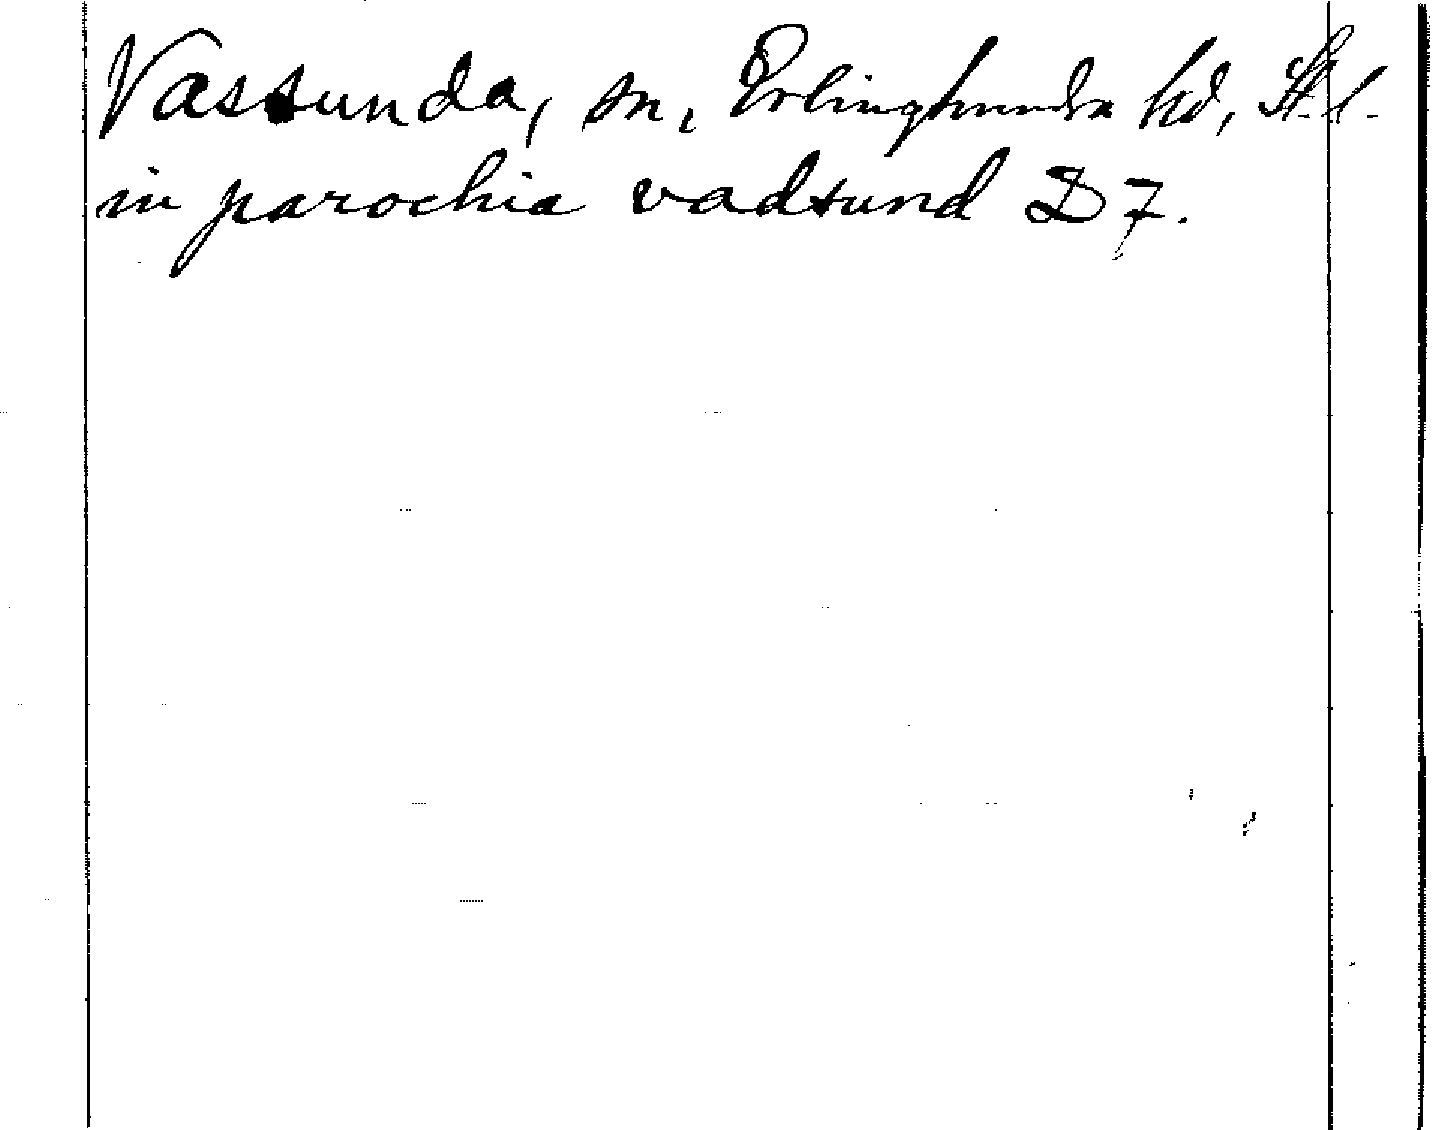 Vassunda, sn, Erlinghundra hd, St. l.
in parochia vadsund D 7.